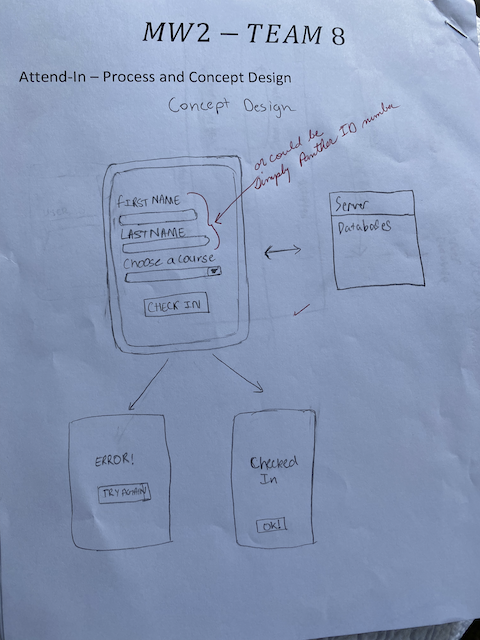 MW2 – TEAM 8
Attend-In – Process and Concept Design
Concept Design
or could be
Simply Panther ID number
FIRST NAME
LAST NAME
Choose a course
CHECK IN
Server
Databases
ERROR!
TRY AGAIN!
Checked
In
OK!